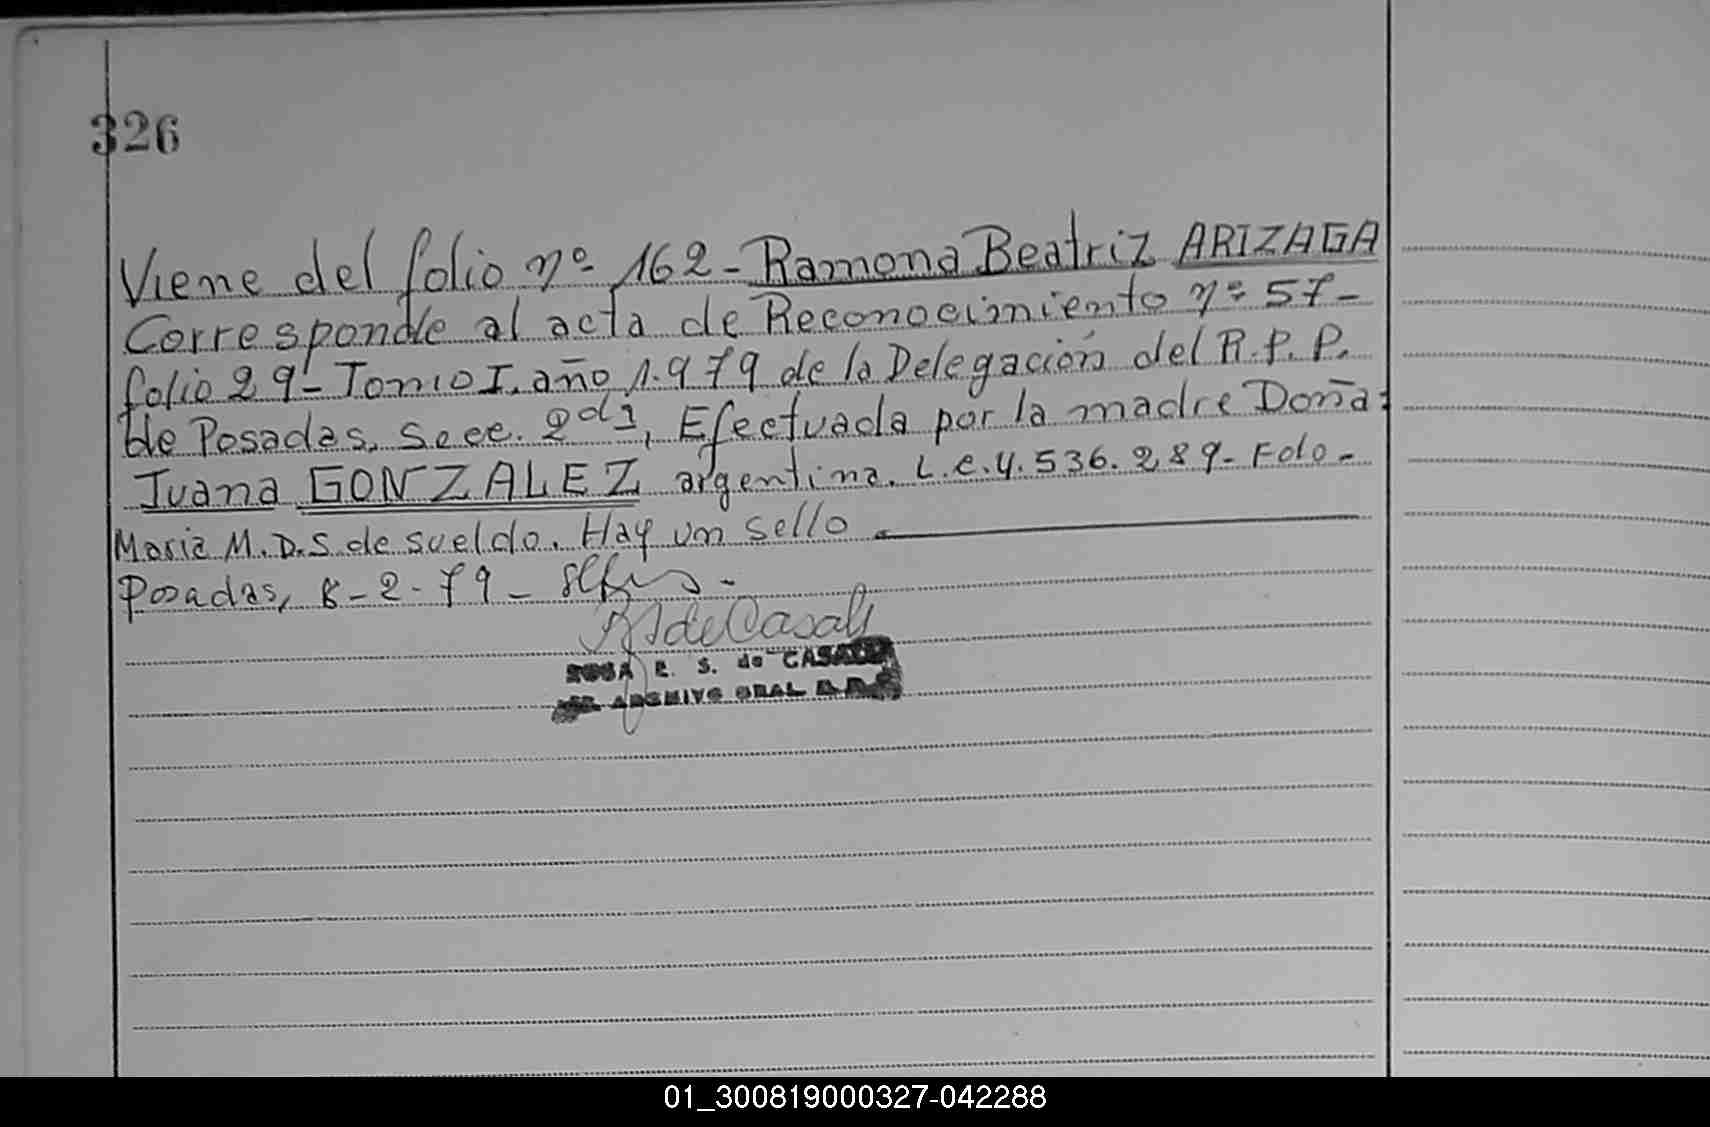 326
Viene del folio nº 162 - Ramona Beatriz ARIZAGA
Corresponde al acta de Reconocimiento nº 57 -
folio 29 - Tomo I. año 1.979 de la Delegación del R.P.P.
de Posadas, Secc. 2da, Efectuada por la madre Doña:
Juana GONZALEZ argentina. L.C.4.536.289 - Fdo -
Maria M.D.S. de sueldo. Hay un sello
Posadas, 8-2-79 -
ROSA E. S. de
ARCHIVO GRAL
01_300819000327-042288